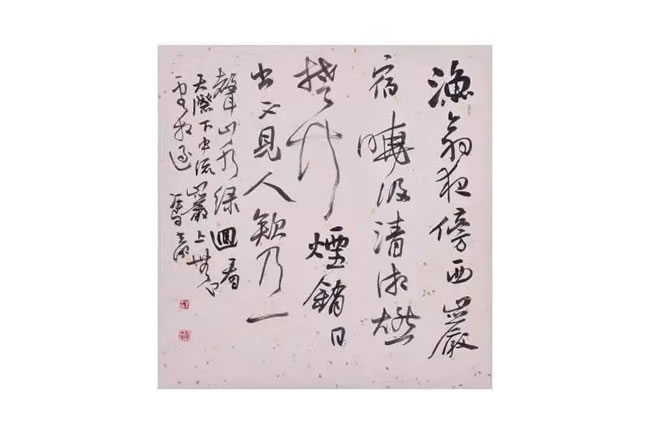 漁翁夜傍西巖
宿曉汲清湘燃
楚竹煙銷日
出不見人欸乃一
聲山水綠回看
天際下中流巖上無心
雲相逐